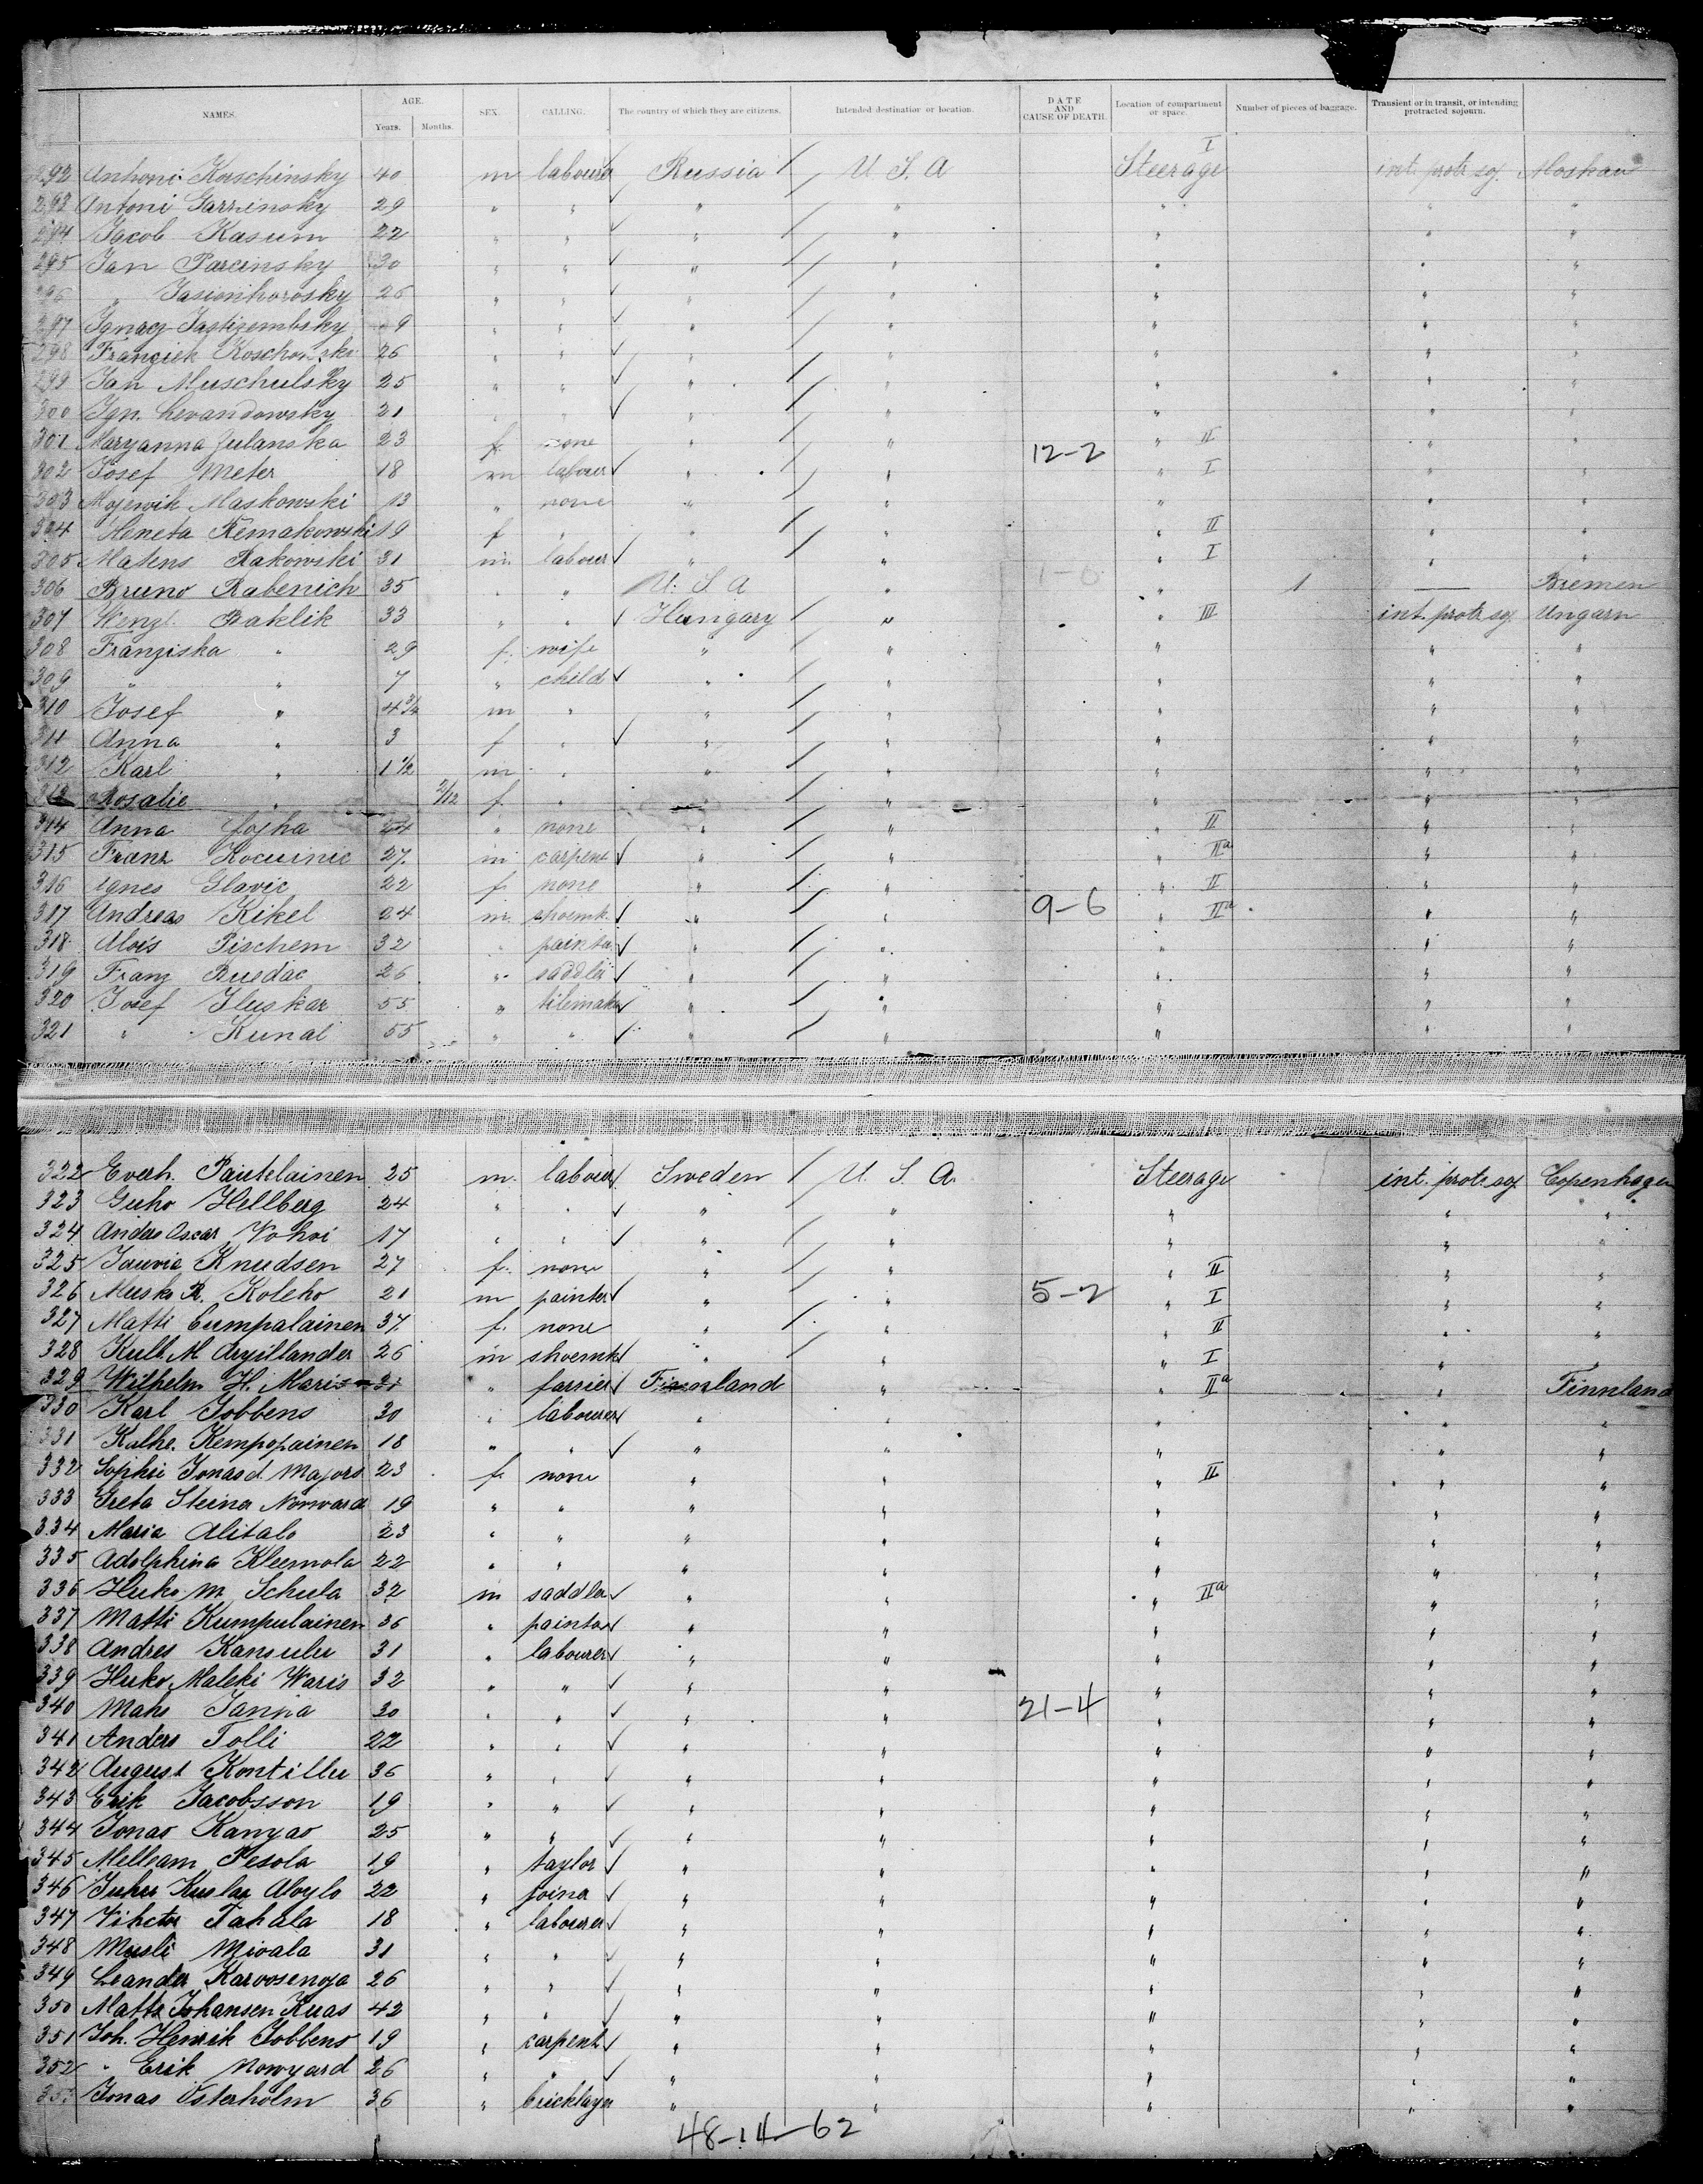 NAMES. AGE. Years. Months. SEX. CALLING. The country of which they are citizens. Intended destination or location. DATE AND CAUSE OF DEATH. Location of compartment or space. Number of pieces of baggage. Transient or in transit, or intending protracted sojourn.
292 Antoni Koschinsky 40 m labourer Russia / U. S. A Steerage I int. protr. soj. Moskau
293 Antoni 29 " " " / " " " "
294 Jacob Kasum 22 " " " / " " " "
295 Jan Parcinsky 30 " " " / " " " "
296 " 26 " " " / " " " "
297 Ignacz 9 " " " / " " " "
298 26 " " " / " " " "
299 Jan Muschulsky 25 " " " / " " " "
300 Ign. Levandowsky 21 " " " / " " " "
301 Maryanna Julanska 23 f. none " / " " II " "
12-2
302 Josef Meter 18 m labour " / " " I " "
303 Maskowski 13 " none " " " " "
304 Heneta Remakowski 19 f " " / " " II " "
305 Matens Rakowski 31 m labour " / " " I " "
306 Bruno Rabenich 35 " " U. S. A " " 1 — Bremen
307 Wenzl. Raklik 33 " " Hungary / " " III int. protr. soj. Ungarn
308 Franziska " 29 f. wife " / " " " "
309 " " 7 " child " / " " " "
310 Josef " 4 3/4 m " " / " " " "
311 Anna " 3 f " " / " " " "
312 Karl " 1 1/2 m " " / " " " "
313 Rosalie " 2/12 f. " " / " " " "
314 Anna Jojha 24 " none " / " " II " "
315 Franz Kocuinic 27. m carpent " / " " IIa " "
316 Agnes Glavic 22 f. none " / " " II " "
317 Andreas Kikel 24 m. shoemk. " / " 9-6 " IIa " "
318 Alois Pischem 32 " painter " / " " " "
319 Franz Ruedac 26 " saddler " / " " " "
320 Josef Iluskar 55 " tilemaker " / " " " "
321 " Kunal 55 " " " / " " " "
322 Everh. Pautelainen 25 m. labourer Sweden / U. S. A. Steerage int. protr. soj. Copenhagen
323 Guho Hellberg 24 " " " / " " " "
324 Anders Oscar Vohoi 17 " " " / " " " "
325 Knudsen 27 f. none " / " " II " "
326 Musko R. Koleho 21 m painter " / " 5-2 " I " "
327 Matti Cumpalainen 37. f. none " / " " II " "
328 Kull. M. 26 m shoemk " / " " I " "
329 Wilhelm H. Maris 31 " farrier Finnland " " IIa " Finnland
330 Karl Jobbens 30 " labourer " " " " "
331 Kalhe. Kempopainen 18 " " " " " " "
332 Sophie Jonasd. Majors 23 f. none " " " II " "
333 Greta Steina Norward 19 " " " " " " "
334 Maria Alitalo 23 " " " " " " "
335 Adolphina Kleemola 22 " " " " " " "
336 Huko M. Schula 32 m saddler " " " IIa " "
337 Matti Kumpulainen 36 " painter " " " " "
338 Andres Kansulu 31 " labourer " " " " "
339 Huko Maleki Waris 32 " " " " " " "
340 Mahs Janna 30 " " " " 21-4 " " "
341 Anders Tolli 22 " " " " " " "
342 August Kontillu 36 " " " " " " "
343 Erik Jacobsson 19 " " " " " " "
344 Jonas Kangas 25 " " " " " " "
345 Melleam Pesola 19 " taylor " " " " "
346 Juhu Kuslaa Aloylo 22 " joiner " " " " "
347 Vihctor Tahala 18 " labourer " " " " "
348 Musli Mivala 31 " " " " " " "
349 Leander Karvosenoja 26 " " " " " " "
350 Matts Johansen Kuas 42 " " " " " " "
351 Joh. Henrik Jobbens 19 " carpent. " " " " "
352 " Erik Nowyard 26 " " " " " " "
353 Jonas Österholm 36 " bricklayer " " " " "
48-14-62